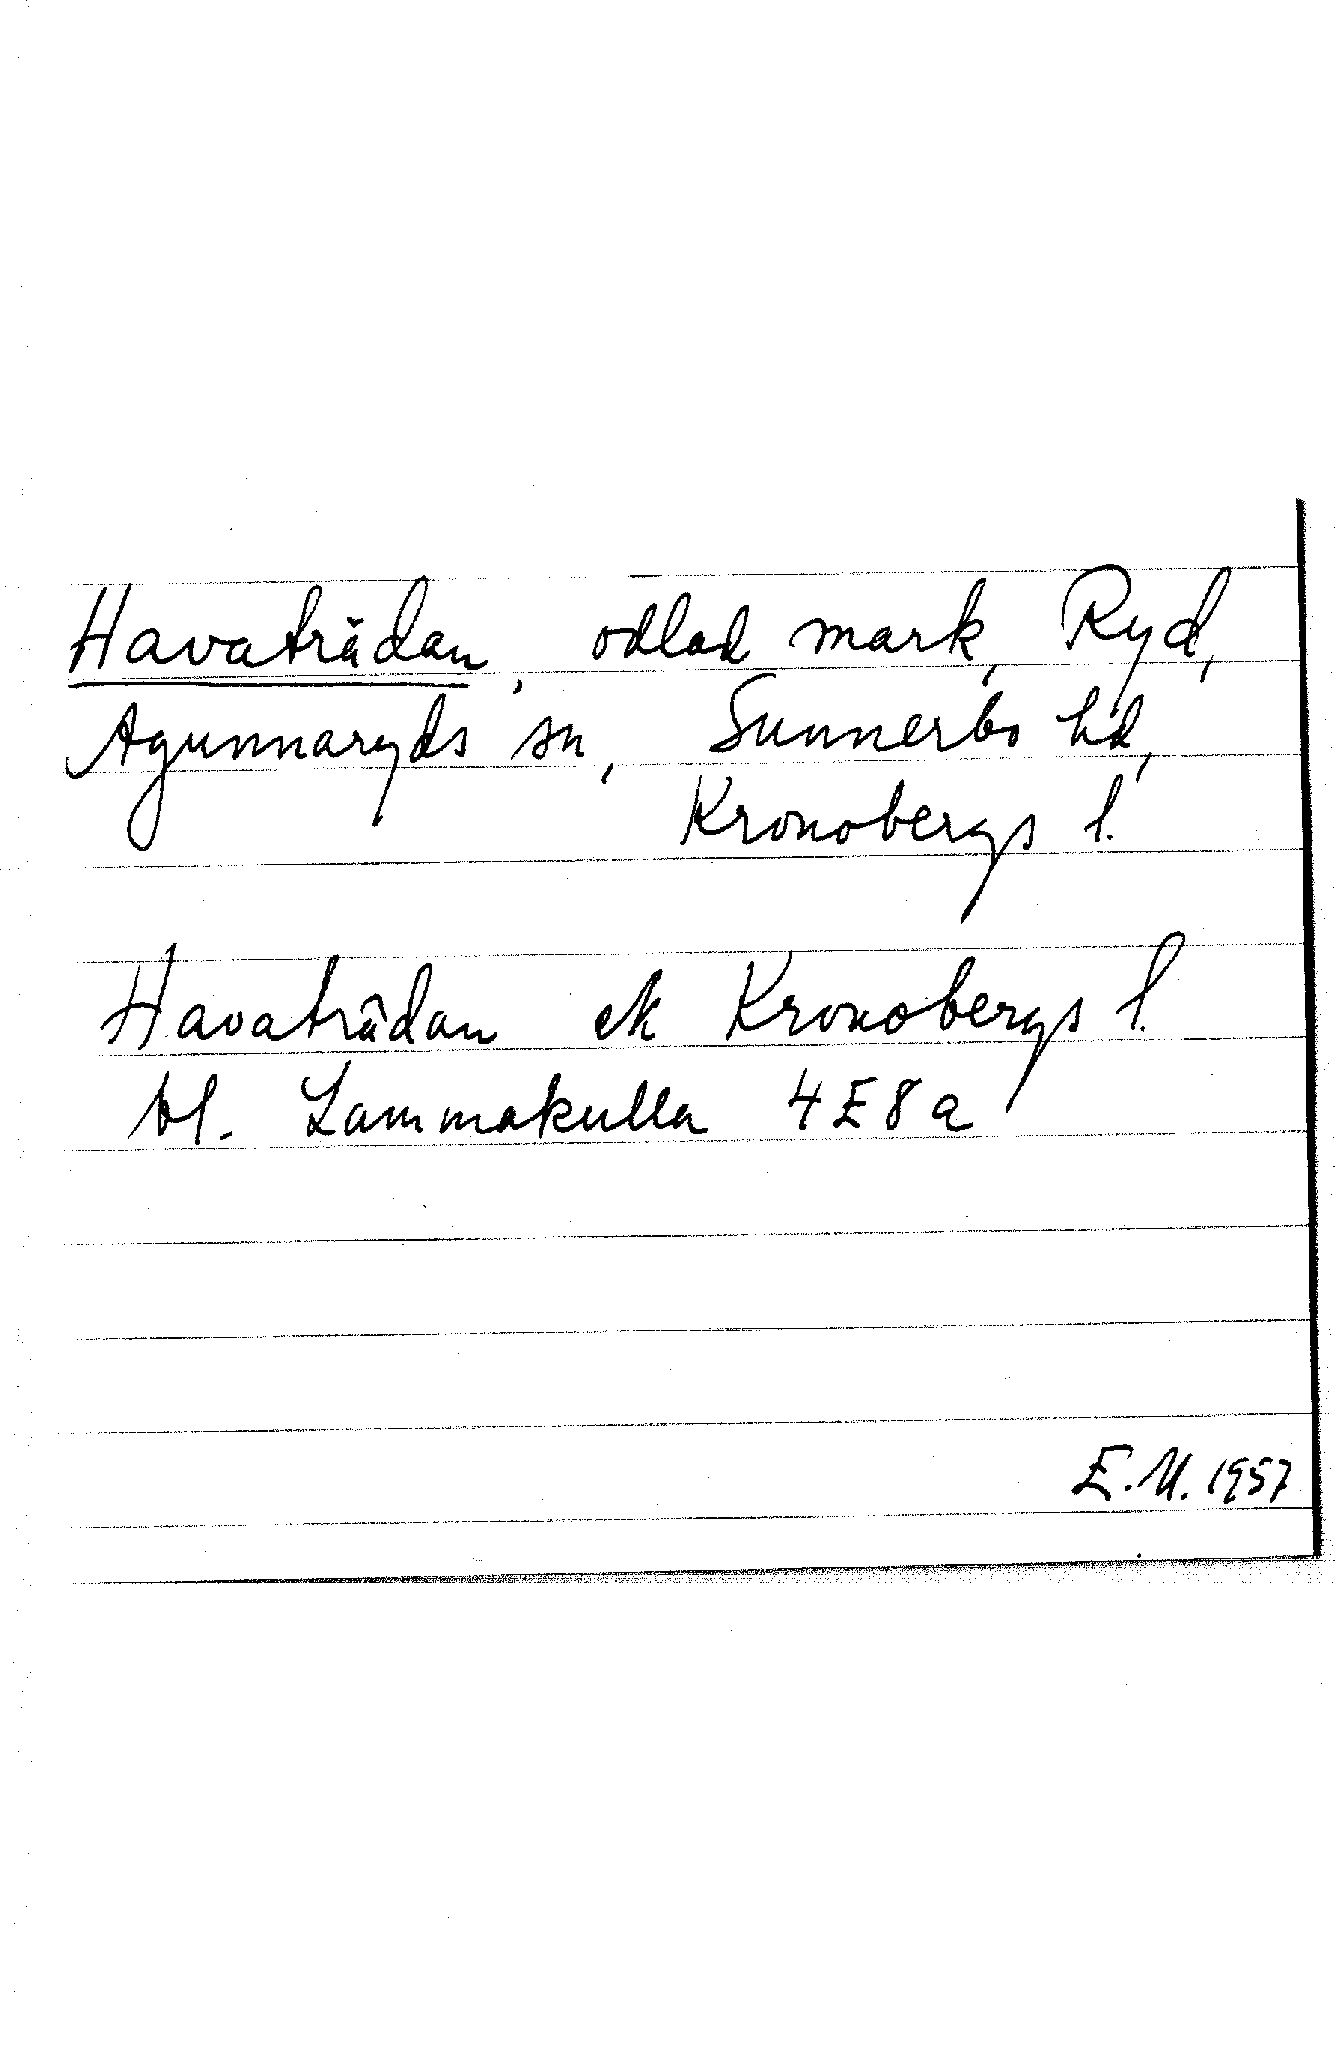 Havaträdan, odlad mark, Ryd,
Agunnaryds sn, Sunnerbo hd,
Kronobergs l.
Havaträdan ek Kronobergs l.
bl. Lammakulla 4E8a
E.U. 1957